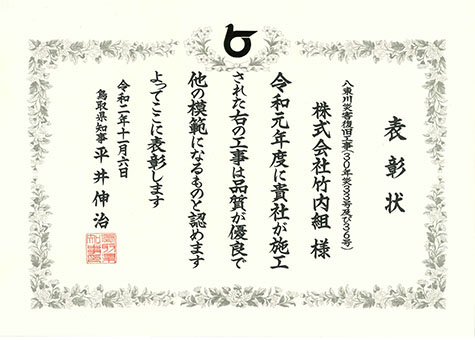 表彰状
八東川災害復旧工事(30年災333号及び336号)
株式会社竹内組 様
令和元年度に貴社が施工
された右の工事は品質が優良で
他の模範になるものと認めます
よってここに表彰します
令和二年十一月六日
鳥取県知事 平井伸治